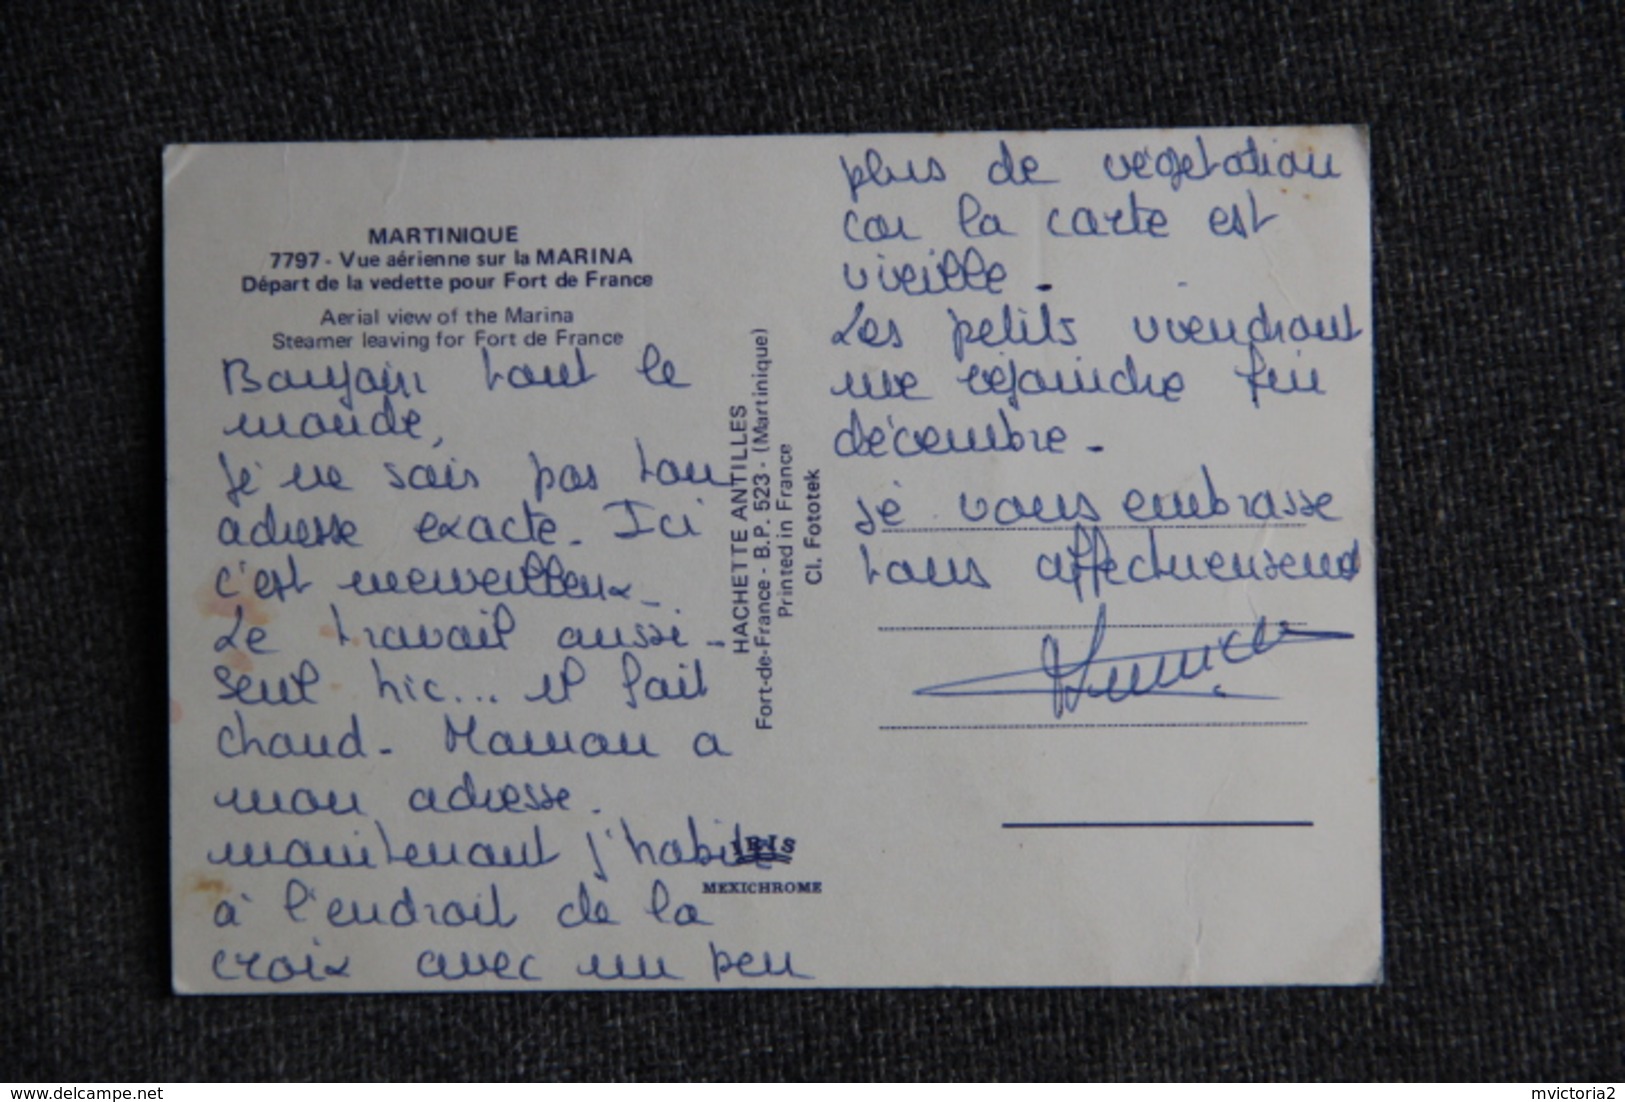 MARTINIQUE
7797 - Vue aérienne sur la MARINA
Départ de la vedette pour Fort de France
Aerial view of the Marina
Steamer leaving for Fort de France
Bonjour tout le
monde,
je ne sais pas ton
adresse exacte. Ici
c'est merveilleux.
Le travail aussi.
Seul hic... il fait
chaud. Maman a
mon adresse.
maintenant j'habite
à l'endroit de la
croix avec un peu
HACHETTE ANTILLES
Fort-de-France - B.P. 523 - (Martinique)
Printed in France
Cl. Fototek
IRIS
MEXICHROME
plus de végétation
car la carte est
vieille.
Les petits viendront
me rejoindre fin
décembre.
je vous embrasse
tous affectueusement
delcampe.net
mvictoria2